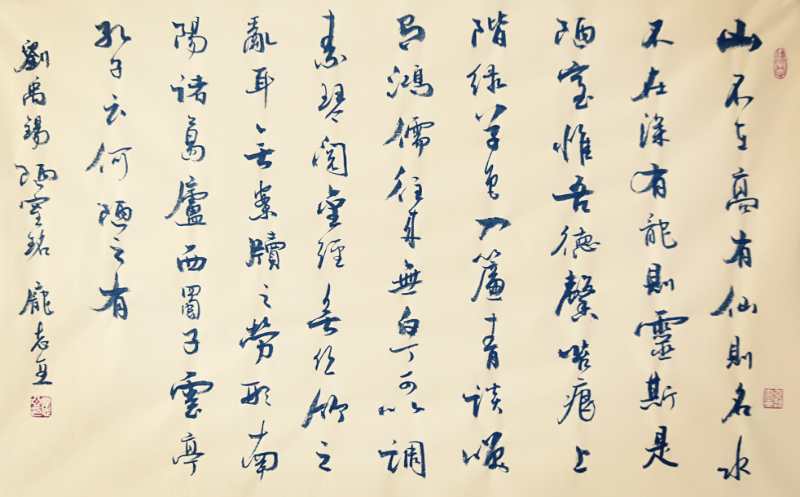 山不在高有仙則名水
不在深有龍則靈斯是
陋室惟吾德馨苔痕上
階綠草色入簾青談笑
有鴻儒往來無白丁可以調
素琴閱金經無絲竹之
亂耳無案牘之勞形南
陽諸葛廬西蜀子雲亭
孔子云何陋之有
劉禹錫陋室銘 龐志